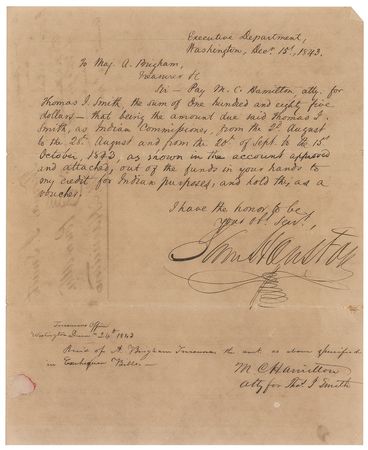 Executive Department,
Washington, Decr. 15th, 1843.
To Maj. A. Brigham,
Treasurer &c
Sir - Pay M. C. Hamilton, atty. for
Thomas I. Smith, the sum of One hundred and eighty five
dollars - that being the amount due said Thomas I.
Smith, as Indian Commissioner, from the 3d. August
to the 28th. August and from the 20th of Sept. to the 15th
October, 1843, as shown in the account approved
and attached, out of the funds in your hands to
my credit for Indian purposes, and hold this as a
voucher.
I have the honor to be
your obt. Servt.
Sam Houston
Treasurers Office
Washington 24th 1843
Recd of A. Brigham Treasurer the amt. as above specified
in Exchequer Bills. -
M C Hamilton
Atty for Thos. I Smith